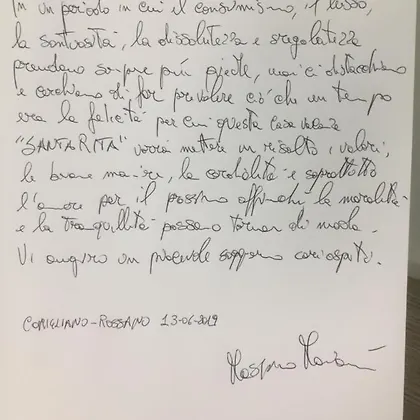 In un periodo in cui il consumismo, il lusso,
la sontuosità, la dissolutezza e sregolatezza
prendono sempre più piede, noi ci ostacoliamo
e cerchiamo di far prevalere ciò che un tempo
era la felicità per cui questa casa vacanza
"SANTA RITA" vorrà mettere in risalto i valori,
le buone maniere, la cordialità e soprattutto
l'amore per il prossimo affinché la moralità
e la tranquillità possano tornare di moda.
Vi auguro un piacevole soggiorno cari ospiti.
CORIGLIANO-ROSSANO 13-06-2019